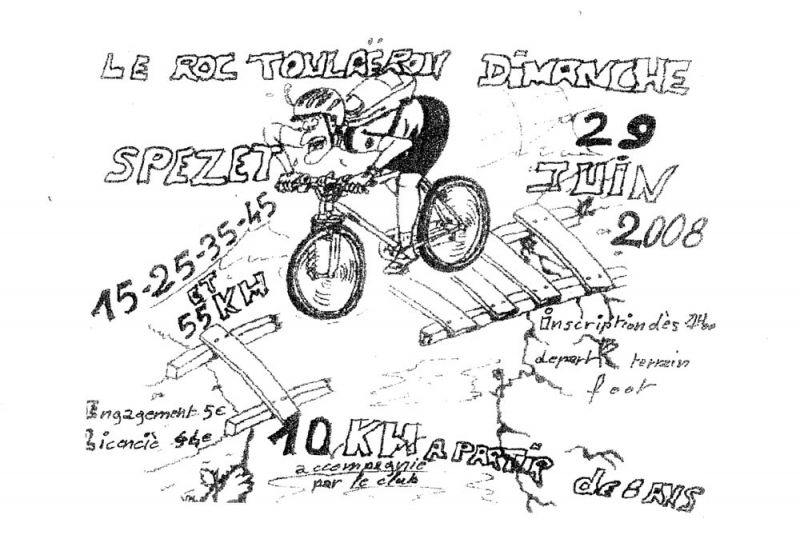 LE ROC TOULAËROU DIMANCHE
29
SPEZET
JUIN
2008
15-25-35-45
ET
55KM
inscription dès
depart terrain
foot
Engagement 5€
Licencié 4€
10 KM A PARTIR
de 8 ANS
accompagnie
par le club